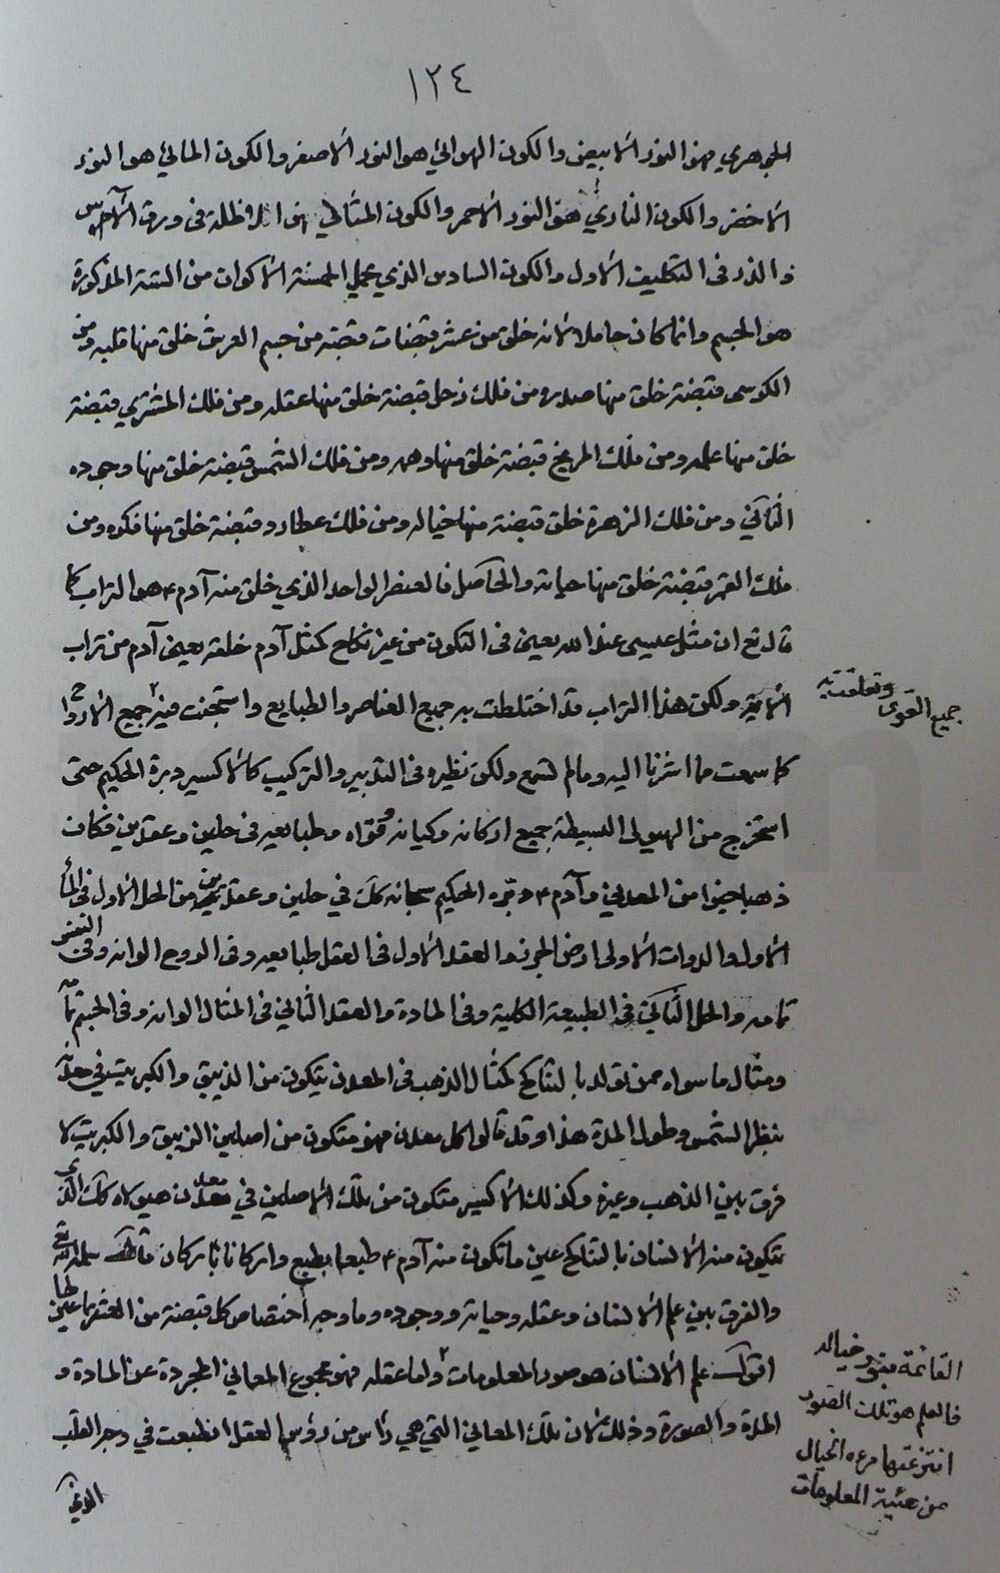 ١٢٤
الجوهري فهو النور الابيض والكون الهوائي هو النور الاصفر والكون المائي هو النور
الاخضر والكون الناري هو النور الاحمر والكون المثالي هو الاظلة في ورق الآس
والذر في التكليف الاول والكون السادس الذي عملي الخمسة الاكوان من الستة المذكورة
هو الجسم وانما كان حاملا لانه خلق من عشر قبضات قبضة من جسم العرش خلق منها قلبه ومن
الكرسي قبضة خلق منها صدره ومن فلك زحل قبضة خلق منها عقله ومن فلك المشتري قبضة
خلق منها علمه ومن فلك المريخ قبضة خلق منها وهمه ومن فلك الشمس قبضة خلق منها وجوده
الثاني ومن فلك الزهرة خلق قبضة منها خياله ومن فلك عطارد قبضة خلق منها فكره ومن
فلك القمر قبضة خلق منها حياته والحاصل فالعنصر الواحد الذي خلق منه آدم ع هو التراب كما
قال تع ان مثل عيسى عند الله يعني في التكون من غير نكاح كمثل آدم خلقه يعني آدم من تراب
الآية ولكن هذا التراب قد اختلطت به جميع العناصر والطبايع واستجنت فيه جميع الارواح
وتعلقت به
جميع القوى
كما سمعت مما اشرنا اليه وما لم تسمع ولكن نظيره في التدبير والتركيب كالاكسير دبره الحكيم حتى
استخرج من الهيولى البسيطة جميع اركانه وكيانه وقواه وطبايعه في حلين وعقدين فكان
ذهبا حيوا من المعدني وآدم ع دبره الحكيم سبحانه كك في حلين وعقدين من الحل الاول في الماء
الاول والدوات الاولى ارض الجرز والعقد الاول في العقل طبايعه وفي الروح الوانه وفي النفس
تمامه والحل الثاني في الطبيعة الكلية وفي المادة والعقد الثاني في المثال الوانه وفي الجسم تمامه
ومثال ما سواه ممن تولد بالتناكح كمثال الذهب في المعدن يتكون من الزيبق والكبريت في
بنظر الشمس وطول المدة هذا وقد قالوا كل معدن فهو متكون من اصلين الزيبق والكبريت لا
فرق بين الذهب وغيره وكذلك الاكسير متكون من تلك الاصلين في معدن هيولاه كك الذي
يتكون منه الانسان بالتناكح عين ما تكون منه آدم ع طبعا بطبع واركانا باركان قال سلمه الله تع
والفرق بين علم الانسان وعقله وحياته ووجوده وما وجه اختصاص كل قبضة من العشر بما عين لها
اقول علم الانسان هو صور المعلومات واما عقله فهو مجموع المعاني المجردة عن المادة و
القائمة بنور خياله
فالعلم هو تلك الصور
انتزعتها مرءاة الخيال
من هيئة المعلومات
المدة والصورة وذلك لان تلك المعاني التي هي راس من رؤس العقل انطبعت في وجه القلب